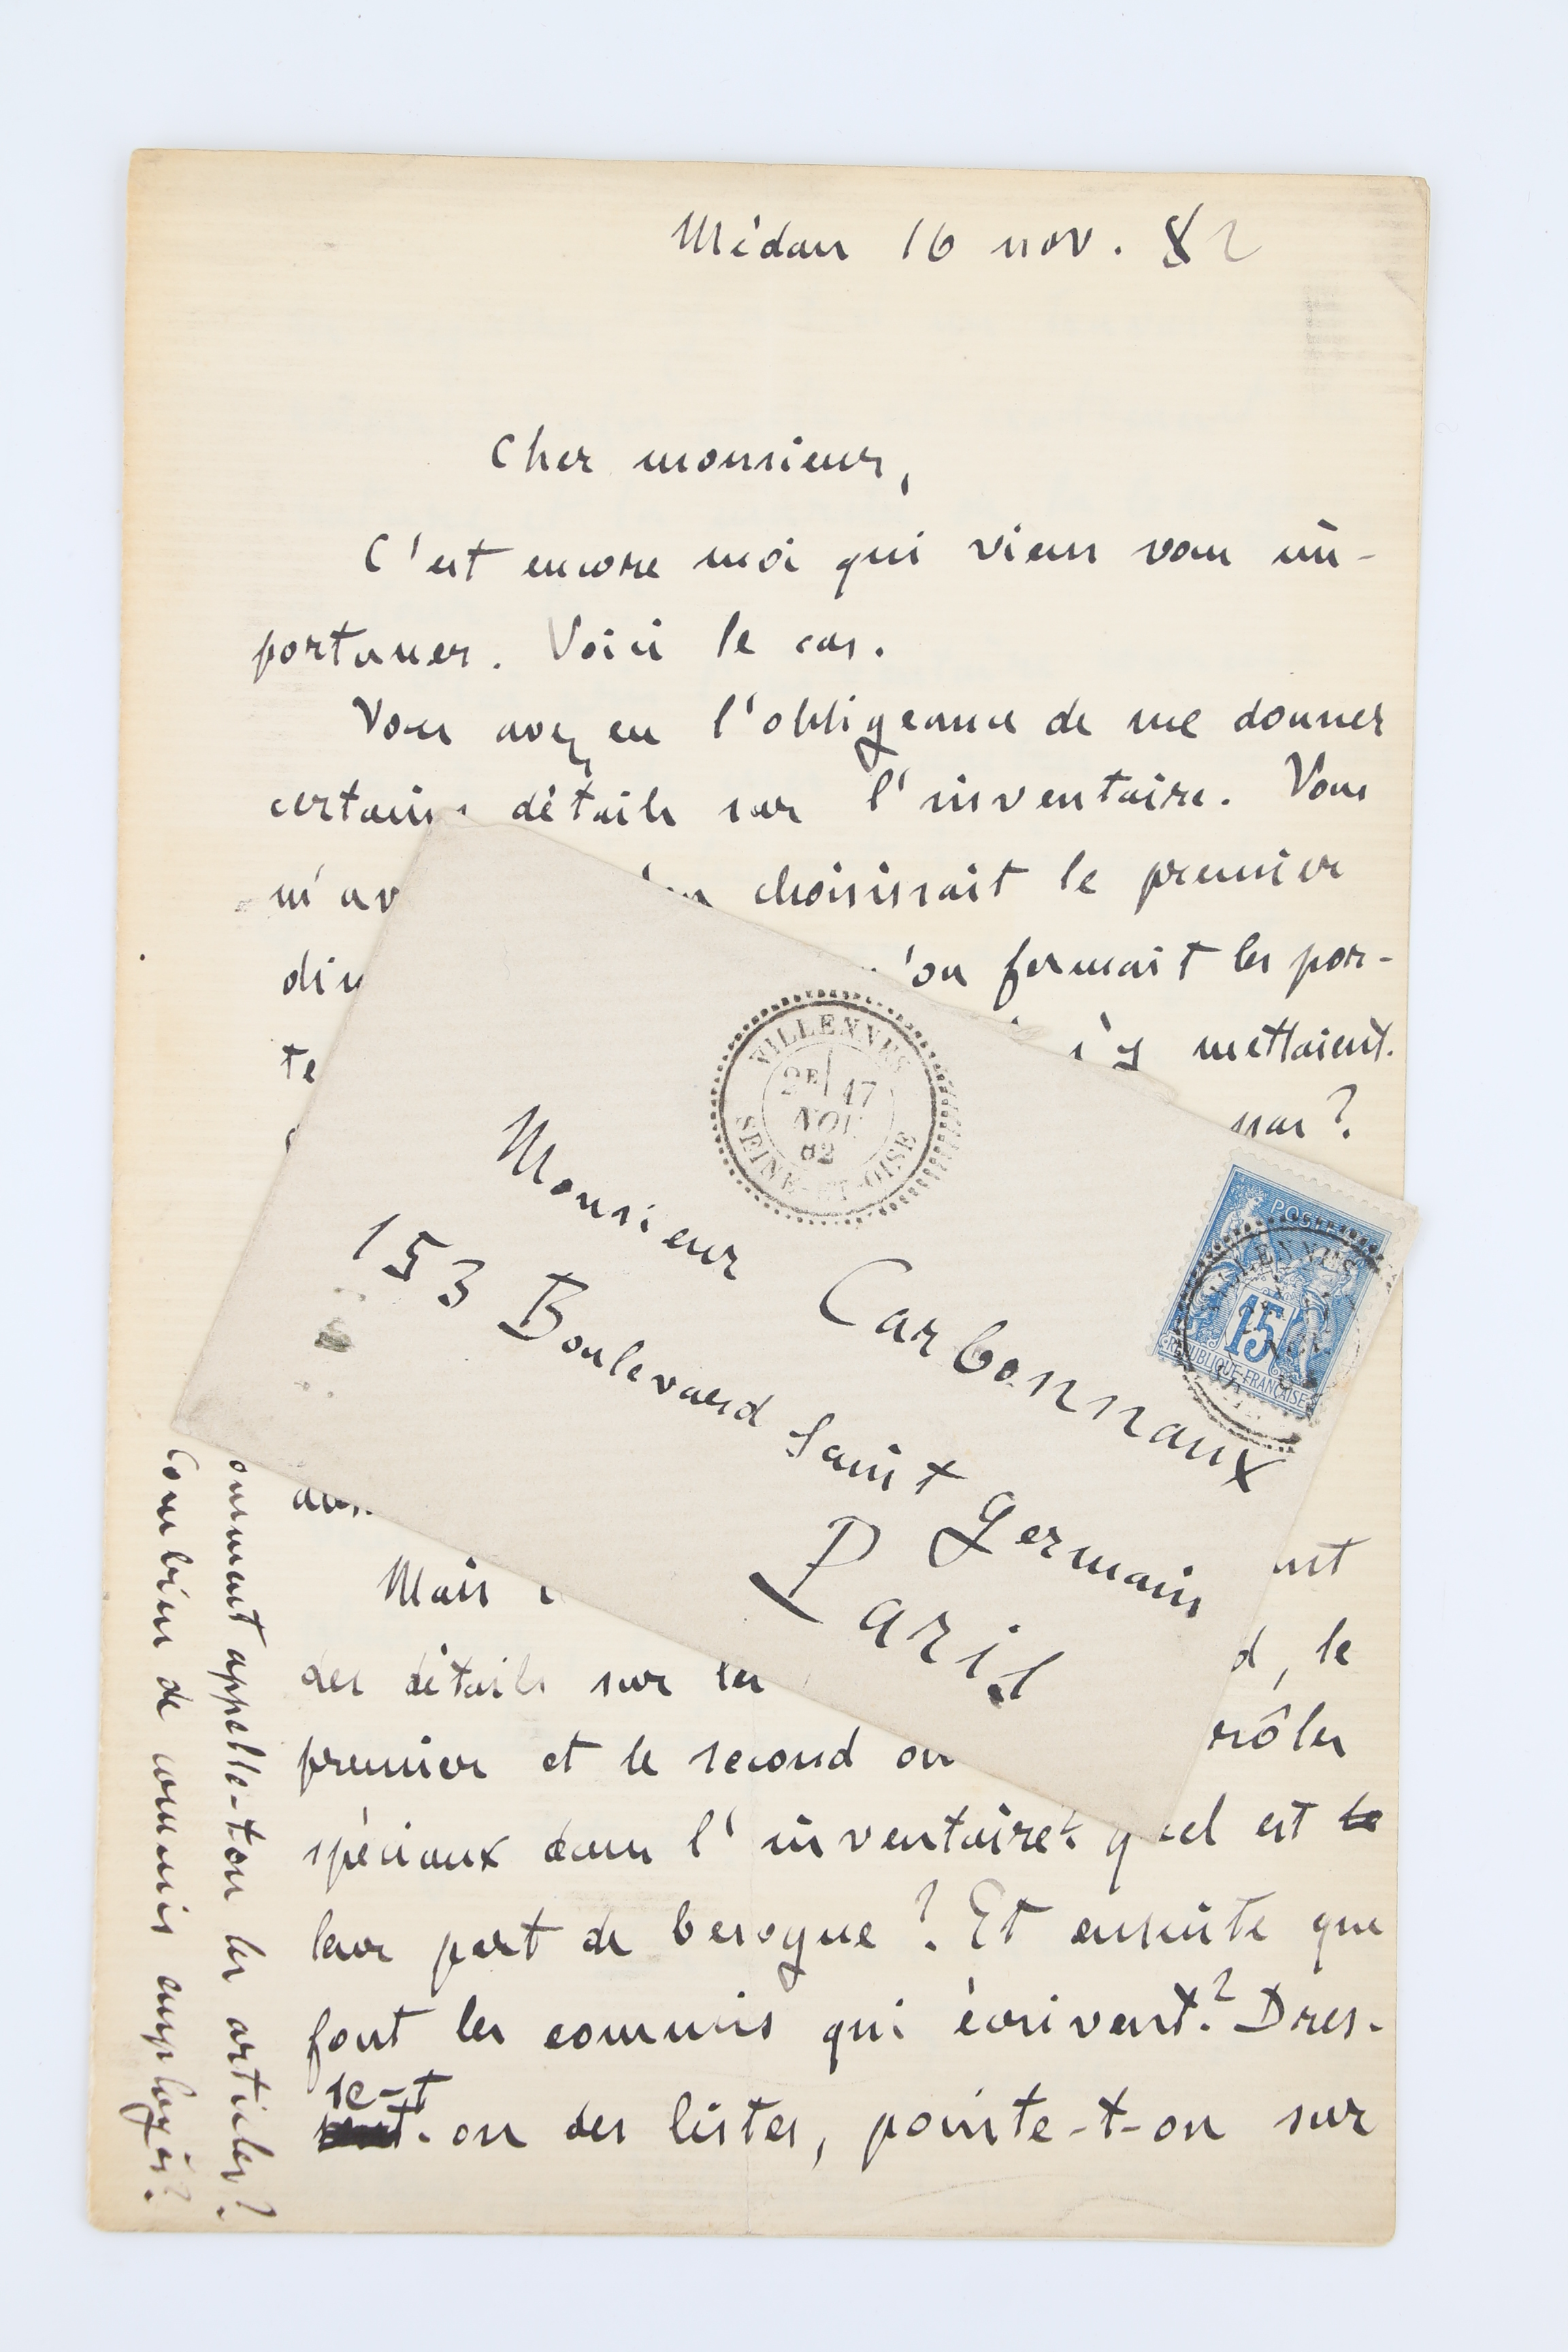 Médan 16 nov. 82
Cher monsieur,
C'est encore moi qui viens vous im-
portuner. Voici le cas.
Vous avez eu l'obligeance de me donner
certains détails sur l'inventaire. Vous
m'av choisissait le premier
'on fermait les por-
te s'y mettaient.
pas?
VILLENNES
2E 17
NOV
82
SEINE-ET-OISE
Monsieur Carbonnaux
153 Boulevard Saint Germain
Paris
POSTES
15
REPUBLIQUE FRANÇAISE
VILLENNES
Mais
des détails sur les d, le
premier et le second on rôles
spéciaux dans l'inventaire? quel est le
leur part de besogne? Et ensuite que
font les commis qui écrivent? Dres-
se-t-on des listes, pointe-t-on sur
omment appelle-t-on les articles?
Combien de commis employés?